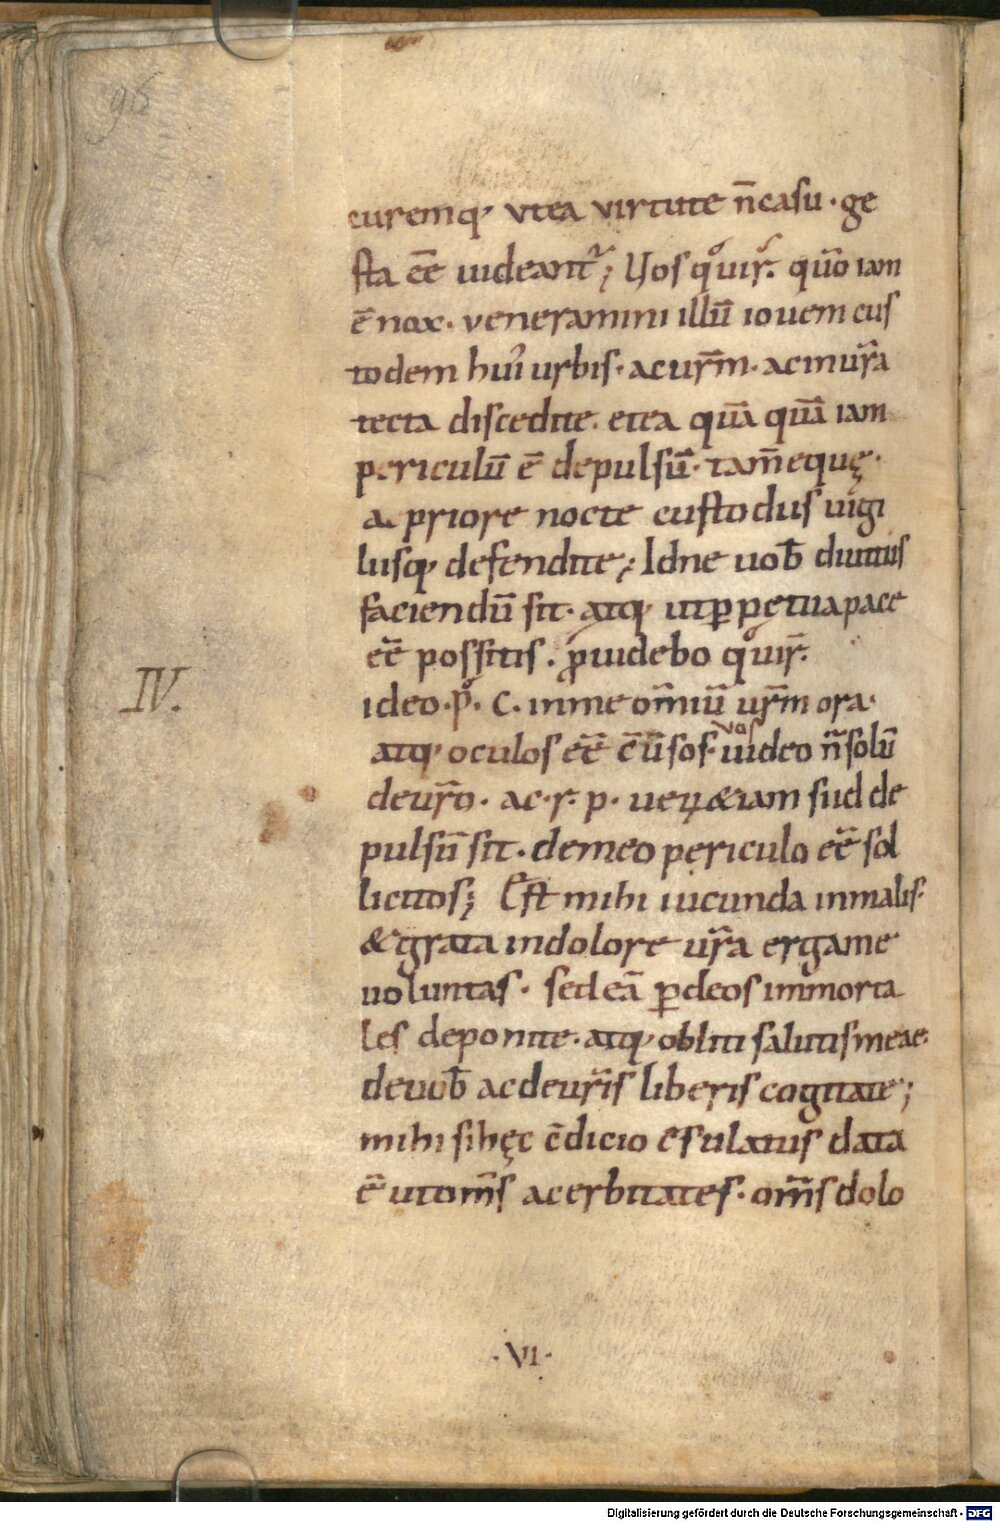 96
curemq; vt ea virtute n̄ casu · ge
sta ēē uideant᷑; Uos qͦuir̄. quō iam
ē nox · veneramini illū iouem cus
todem hui᾽ urbis · ac ur̄m · ac in ur̄a
tecta discedite. et ea quā quā iam
periculū ē depulsū · tam̄ equę ·
ac priore nocte custodiis uigi
liisq; defendite; Id ne uob̄ diutius
faciendū sit · atq; ut ꝑpetua pace
ēē possitis . ꝓuidebo qͦuir̄.
IV.
ideo · p̊ · c · in me om̄iū ur̄m ora ·
atq; oculos ēē c̄ūsos · uideo n̄ solū
vos
de ur̄o · ac · r · p · uerū & iam si id de
pulsū sit · de meo periculo ēē sol
licitos; Est mihi iucunda in malis ·
& grata in dolore ur̄a erga me
voluntas · sed eā ꝑ deos immorta
les deponite · atq; obliti salutis meae ·
de uob̄ ac de ur̄is liberis cogitate;
mihi si hęc c̄dicio c̄sulatus data
ē ut om̄s acerbitates · om̄s dolo
· VI ·
Digitalisierung gefördert durch die Deutsche Forschungsgemeinschaft - DFG